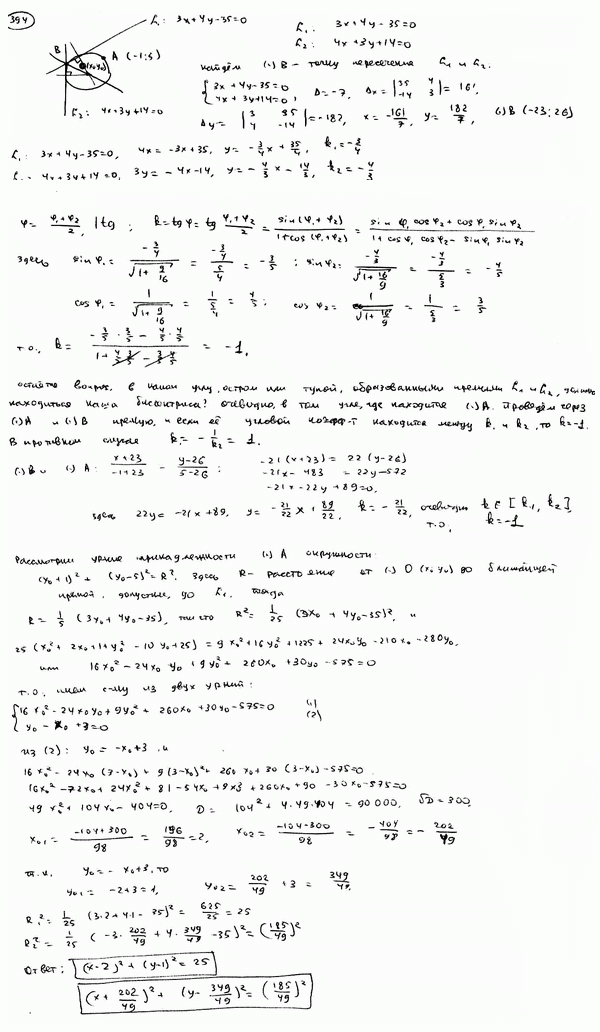 394
L₁: 3x+4y-35=0
L₁: 3x+4y-35=0
L₂: 4x+3y+14=0
B A (-1;5)
(x₀y₀)
L₂: 4x+3y+14=0
найдём (.) B - точку пересечения L₁ и L₂.
{3x+4y-35=0 4x+3y+14=0, Δ=-7, Δx=|35 4 -14 3|=161,
Δy=|3 35 4 -14|=-182, x=-161/7, y=182/7, (.) B (-23;26)
L₁: 3x+4y-35=0, 4y=-3x+35, y=-3/4x+35/4, k₁=-3/4
L₂: 4x+3y+14=0, 3y=-4x-14, y=-4/3x-14/3, k₂=-4/3
φ=(φ₁+φ₂)/2, |tg; k=tgφ=tg (φ₁+φ₂)/2=sin(φ₁+φ₂)/(1+cos(φ₁+φ₂))=(sinφ₁cosφ₂+cosφ₁sinφ₂)/(1+cosφ₁cosφ₂-sinφ₁sinφ₂)
здесь sinφ₁=(-3/4)/√(1+9/16)=(-3/4)/(5/4)=-3/5; sinφ₂=(-4/3)/√(1+16/9)=(-4/3)/(5/3)=-4/5
cosφ₁=1/√(1+9/16)=1/(5/4)=4/5; cosφ₂=1/√(1+16/9)=1/(5/3)=3/5
т.о., k=(-3/5·3/5-4/5·4/5)/(1+4/5·3/5-3/5·4/5)=-1,
остаётся вопрос, в каком углу, остром или тупой, образованными прямыми L₁ и L₂, должна
находиться наша биссектриса? очевидно, в том угле, где находится (.) A. Проведём через
(.) A и (.) B прямую, и если её угловой коэфф-т находится между k₁ и k₂, то k=-1.
В противном случае k=-1/k₂=1.
(.) B и (.) A: (x+23)/(-1+23)=(y-26)/(5-26); -21(x+23)=22(y-26)
-21x-483=22y-572
-21x-22y+89=0,
здесь 22y=-21x+89, y=-21/22x+89/22, k=-21/22, очевидно k∈[k₁,k₂],
т.о., k=-1
Рассмотрим ур-ние принадлежности (.) A окружности
(x₀+1)²+(y₀-5)²=R². Здесь R- расстояние от (.) O (x₀y₀) до ближайшей
прямой, допустим, до L₁. тогда
R=1/5(3x₀+4y₀-35), так что R²=1/25(3x₀+4y₀-35)², и
25(x₀²+2x₀+1+y₀²-10y₀+25)=9x₀²+16y₀²+1225+24x₀y₀-210x₀-280y₀,
или 16x₀²-24x₀y₀+9y₀²+260x₀+30y₀-575=0
т.о, имеем с-му из двух ур-ний:
{16x₀²-24x₀y₀+9y₀²+260x₀+30y₀-575=0 (1)
y₀-x₀+3=0 (2)
из (2): y₀=-x₀+3, и
16x₀²-24x₀(3-x₀)+9(3-x₀)²+260x₀+30(3-x₀)-575=0
16x₀²-72x₀+24x₀²+81-54x₀+9x₀²+260x₀+90-30x₀-575=0
49x₀²+104x₀-404=0, D=104²+4·49·404=90000, √D=300,
x₀₁=(-104+300)/98=196/98=2, x₀₂=(-104-300)/98=-404/98=-202/49
т.к. y₀=-x₀+3, то
y₀₁=-2+3=1, y₀₂=202/49+3=349/49,
R₁²=1/25(3·2+4·1-35)²=625/25=25
R₂²=1/25(-3·202/49+4·349/49-35)²=(185/49)²
Ответ: (x-2)²+(y-1)²=25
(x+202/49)²+(y-349/49)²=(185/49)²